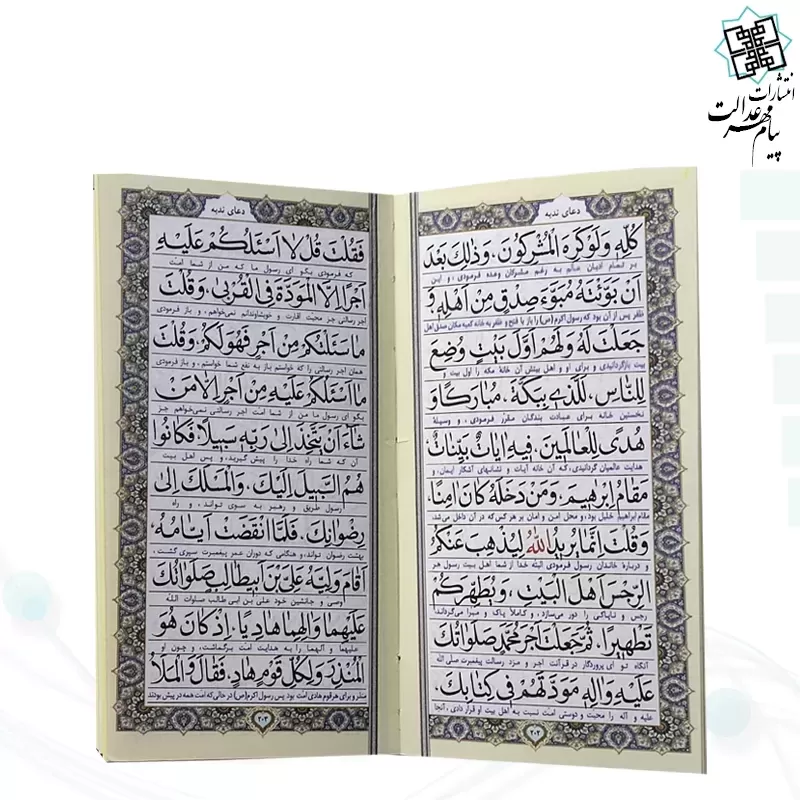 انتشارات
پیام مهر عدالت
دعای ندبه
كُلِّهِ وَلَوْ كَرِهَ الْمُشْرِكُونَ، وَذٰلِكَ بَعْدَ
بر تمام ادیان عالم به رغم مشرکان وعده فرمودی، و این
اَنْ بَوَّئْتَهُ مُبَوَّءَ صِدْقٍ مِنْ اَهْلِهِ، وَ
ظفر پس از آن بود که رسول اکرم (ص) را باز با فتح و ظفر به خانه کعبه مکان صدق اهل
جَعَلْتَ لَهُ وَلَهُمْ اَوَّلَ بَيْتٍ وُضِعَ
بیت بازگردانیدی و برای او و اهل بیتش آن خانه مکه را اول بیت و
لِلنّاسِ، لَلَّذى بِبَكَّةَ، مُبارَكًا وَ
نخستین خانه برای عبادت بندگان مقرر فرمودی، و وسیلهٔ
هُدًى لِلْعالَمينَ، فيهِ اٰياتٌ بَيِّناتٌ،
هدایت عالمیان گردانیدی، که آن خانه آیات و نشانهای آشکار ایمان، و
مَقامُ اِبْرٰهيمَ، وَمَنْ دَخَلَهُ كانَ اٰمِنًا،
مقام ابراهیم خلیل بود، و محل امن و امان بر هر کس که در آن داخل می‌شد،
وَقُلْتَ اِنَّما يُريدُ اللّٰهُ لِيُذْهِبَ عَنْكُمُ
و درباره خاندان رسول فرمودی البته خدا از شما اهل بیت رسول هر
الرِّجْسَ اَهْلَ الْبَيْتِ، وَيُطَهِّرَكُمْ
رجس و ناپاکی را دور می‌سازد، و کاملاً پاک و مبرا می‌گرداند
تَطْهيرًا، ثُمَّ جَعَلْتَ اَجْرَ مُحَمَّدٍ صَلَواتُكَ
آنگاه تو ای پروردگار در قرآنت اجر و مزد رسالت پیغمبرت صلی الله
عَلَيْهِ وَاٰلِهِ مَوَدَّتَهُمْ فى كِتابِكَ،
علیه و آله را محبت و دوستی امت نسبت به اهل بیت او قرار دادی، آنجا
۲۰۲
دعای ندبه
فَقُلْتَ قُلْ لا اَسْئَلُكُمْ عَلَيْهِ
که فرمودی بگو ای رسول ما که من از شما امت
اَجْرًا اِلَّا الْمَوَدَّةَ فِى الْقُرْبىٰ، وَقُلْتَ
اجر رسالتی جز محبت اقارب و خویشاوندانم نمی‌خواهم، و باز فرمودی
ما سَئَلْتُكُمْ مِنْ اَجْرٍ فَهُوَ لَكُمْ، وَقُلْتَ
همان اجر رسالتی که خواستم باز به نفع شما خواستم، و باز فرمودی
ما اَسْئَلُكُمْ عَلَيْهِ مِنْ اَجْرٍ اِلّا مَنْ
بگو ای رسول ما من از شما امت اجر رسالتی نمی‌خواهم جز
شاءَ اَنْ يَتَّخِذَ اِلىٰ رَبِّهِ سَبيلًا، فَكانُوا
آن که شما راه خدا را پیش گیرید، و پس اهل بیت
هُمُ السَّبيلَ اِلَيْكَ، وَالْمَسْلَكَ اِلىٰ
رسول طریق و رهبر به سوی تواند، و راه
رِضْوانِكَ، فَلَمَّا انْقَضَتْ اَيّامُهُ،
بهشت رضوان تواند، و هنگامی که دوران عمر پیغمبرت سپری گشت،
اَقامَ وَلِيَّهُ عَلِىَّ بْنَ اَبيطالِبٍ صَلَواتُكَ
وصی و جانشین خود علی بن ابی طالب صلوات الله
عَلَيْهِما وَاٰلِهِما هادِيًا، اِذْ كانَ هُوَ
علیهما و آلهما را به هدایت امت برگماشت، و چون او
الْمُنْذِرَ وَلِكُلِّ قَوْمٍ هادٍ، فَقالَ وَالْمَلَاُ
منذر و برای هر قوم هادی امت بود پس رسول اکرم(ص) در حالی که امت همه در پیش بودند
۲۰۳